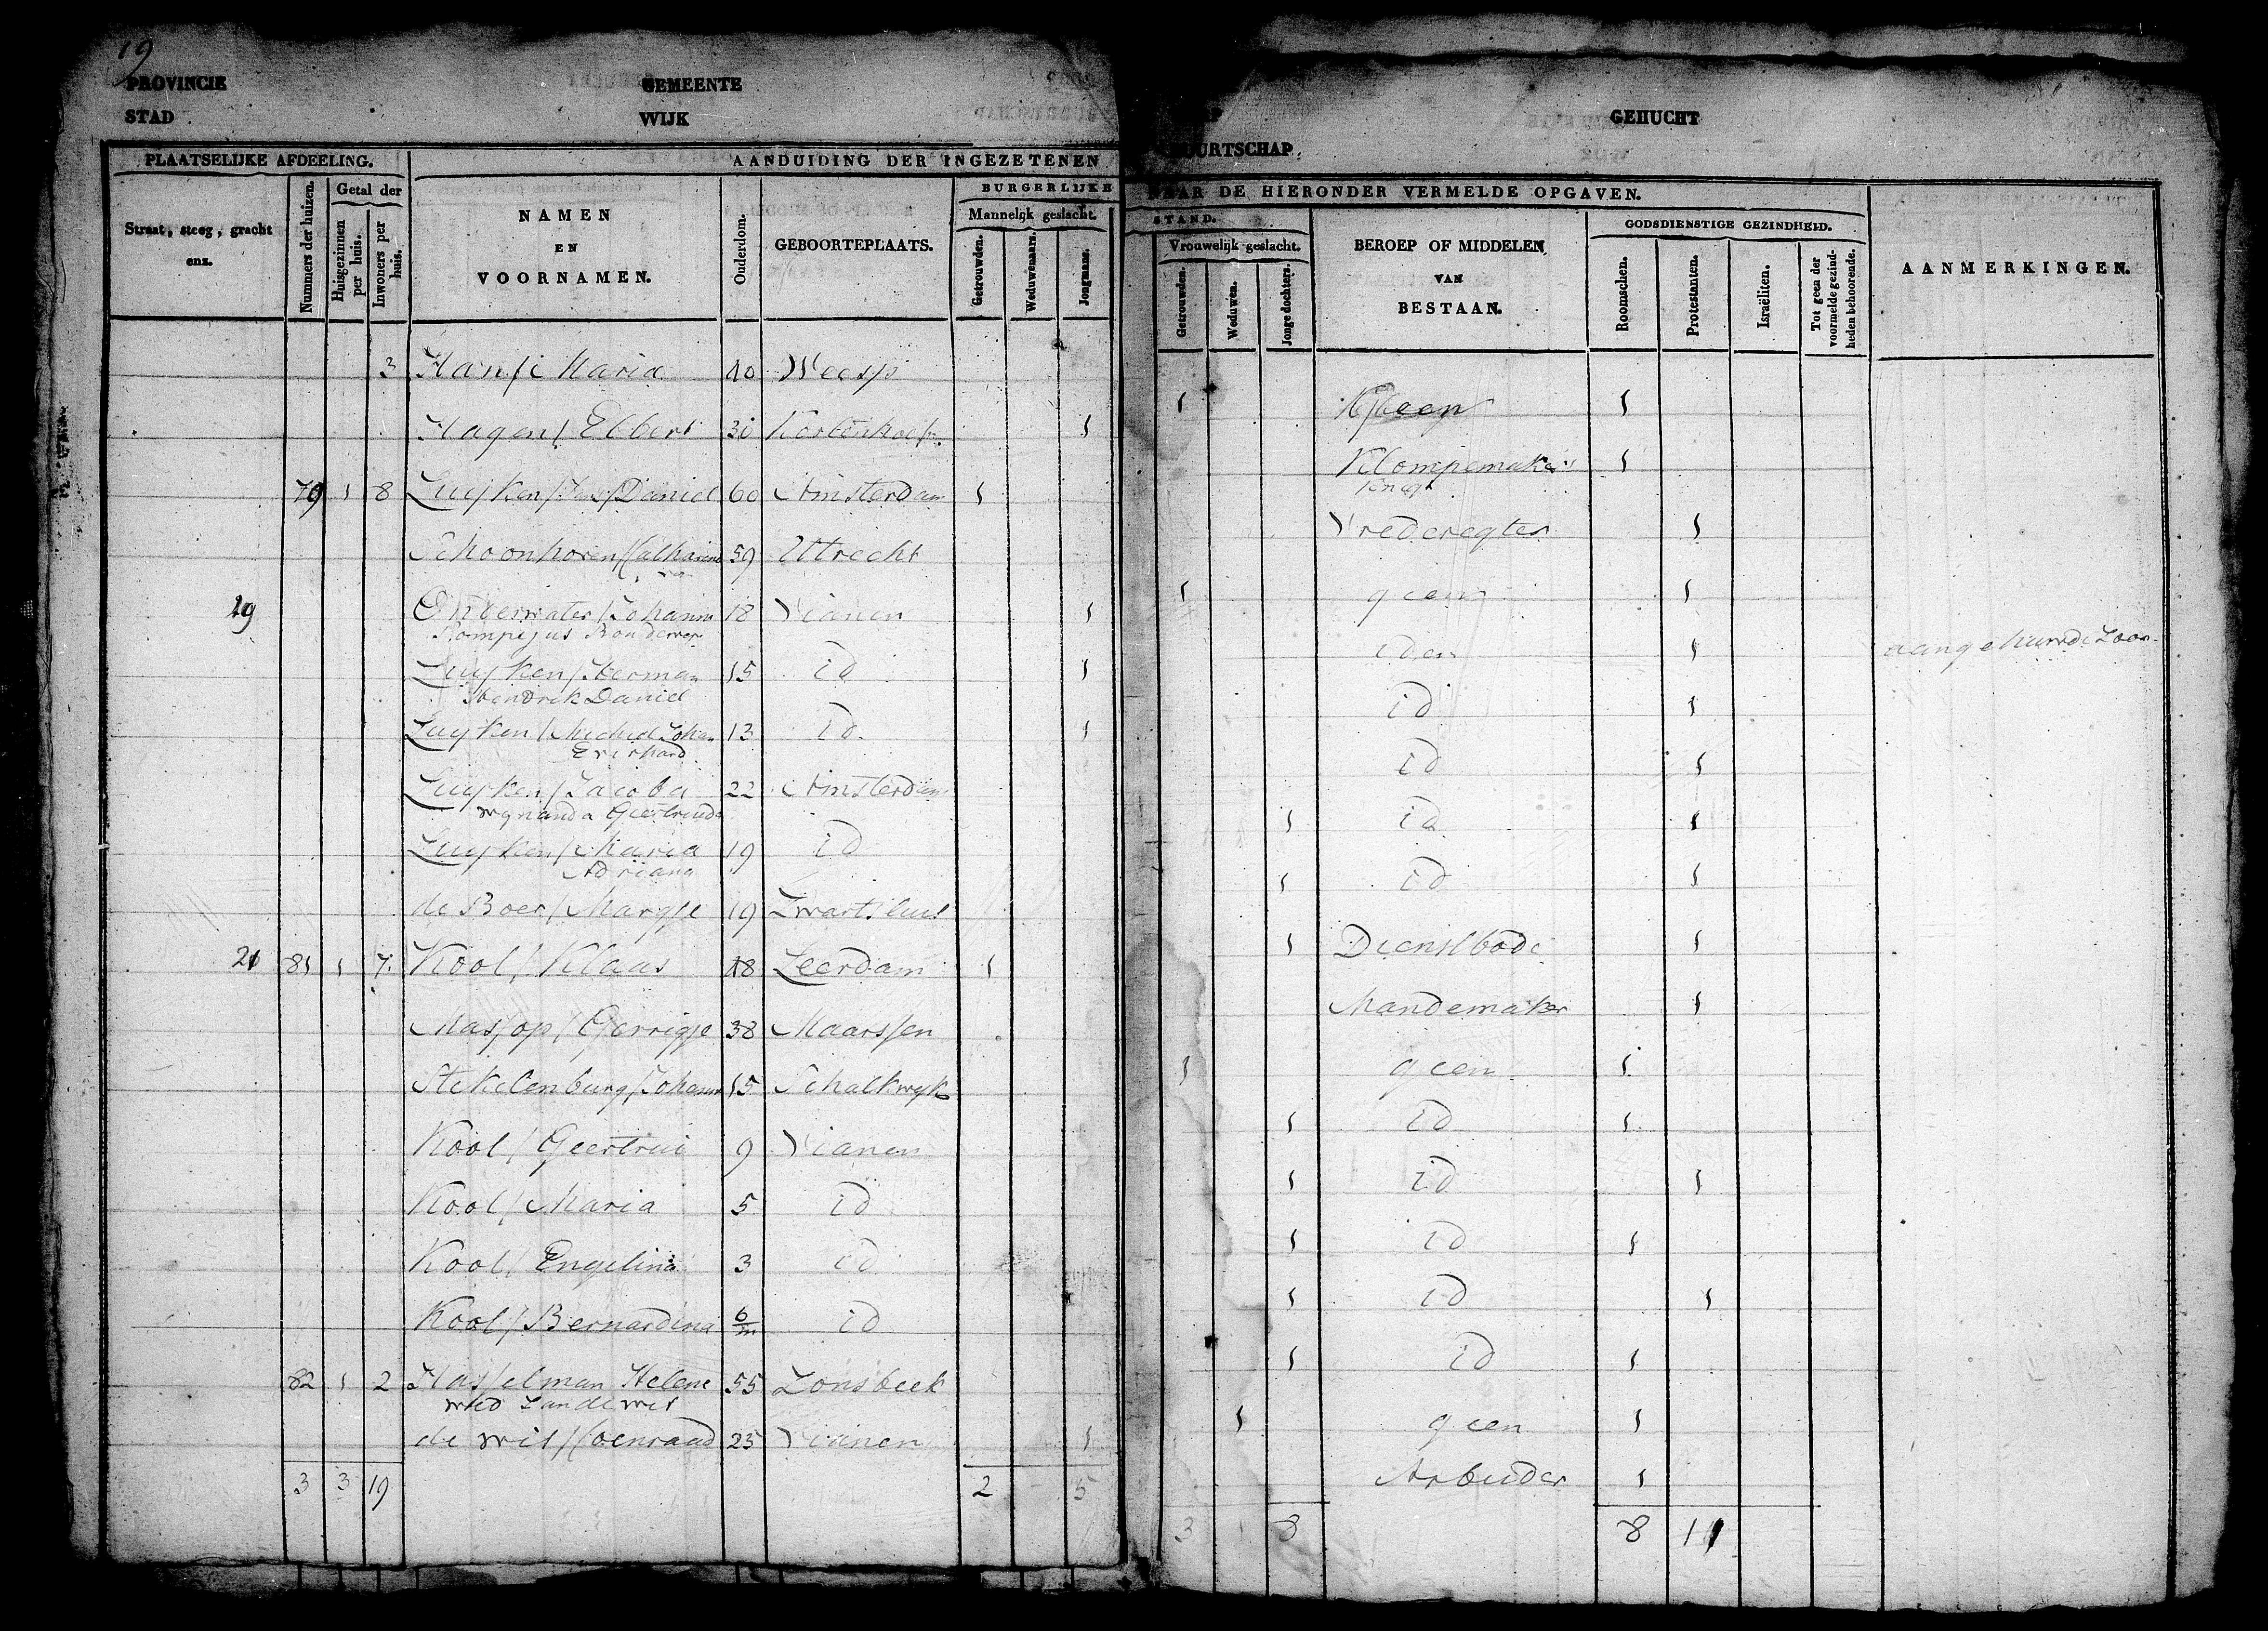 19
PROVINCIE GEMEENTE GEHUCHT
STAD WIJK
PLAATSELIJKE AFDEELING. AANDUIDING DER INGEZETENEN DE HIERONDER VERMELDE OPGAVEN.
Straat, steeg, gracht enz.
Nummers der huizen.
Getal der
Huisgezinnen per huis.
Inwoners per huis.
NAMEN
EN
VOORNAMEN.
Ouderdom.
GEBOORTEPLAATS.
BURGERLIJKE STAND.
Mannelijk geslacht.
Getrouwden.
Weduwenaars.
Jongmans.
Vrouwelijk geslacht.
Getrouwden.
Weduwen.
Jonge dochters.
BEROEP OF MIDDELEN
VAN
BESTAAN.
GODSDIENSTIGE GEZINDHEID.
Roomschen.
Protestanten.
Israëliten.
Tot geen der voormelde gezindheden behoorende.
AANMERKINGEN.
3 Maria 40 Weesp 1 geen 1
Hagen / Ebbert 30 1 Klompemakers 1
79 1 8 Luyken / / Daniel 60 Amsterdam 1 Vrederegter 1
Schoonhoven / Catharina 59 Utrecht 1 geen 1
19 Onderwater / Johannes 18 Vianen 1 idem 1
Luyken / Herman 15 id 1 id 1
Hendrik Daniel
Luyken / Michiel Johan 13 id 1 id 1
Everhard
Luyken / Jacoba 22 Amsterdam 1 id 1
Wynanda Geertruida
Luyken / Maria 19 id 1 id 1
Adriana
de Boer / Margje 19 Zwartsluis 1 Dienstbode 1
21 81 1 7 Kool / Klaas 48 Leerdam 1 Mandemaker 1
Masjop / Gerrigje 38 Maarssen 1 geen 1
Stekelenburg / Johanna 15 Schalkwyk 1 id 1
Kool / Geertrui 9 Vianen 1 id 1
Kool / Maria 5 id 1 id 1
Kool / Engelina 3 id 1 id 1
Kool / Bernardina 6/m id 1 id 1
82 1 2 Hasselman Helene 55 Zonsbeek 1 geen 1
wed
de Wit / Coenraad 25 Vianen 1 Arbeider 1
3 3 19 2 5 3 1 8 8 11